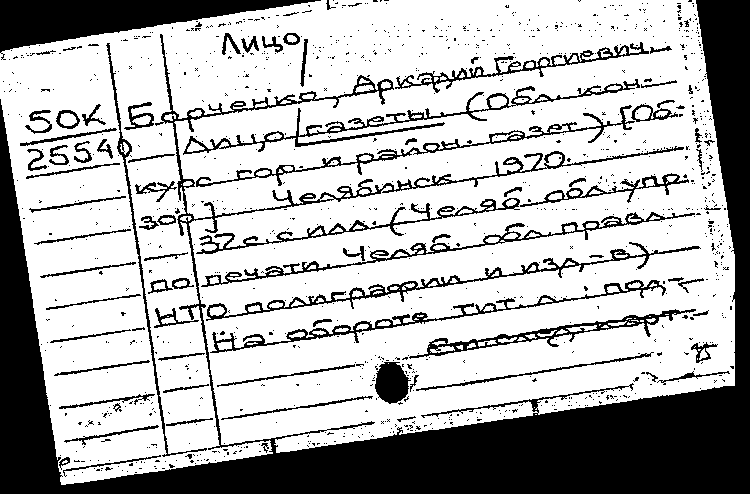 Лицо
50К
25540
Борченко, Аркадий Георгиевич.
Лицо газеты. (Обл. кон-
курс гор. и район. газет). [Об-
зор] Челябинск, 1970.
32с. с илл. (Челяб. обл. упр.
по печати. Челяб. обл. правл.
НТО полиграфии и изд-в).
На обороте тит. л.: под-
См. след. карт.